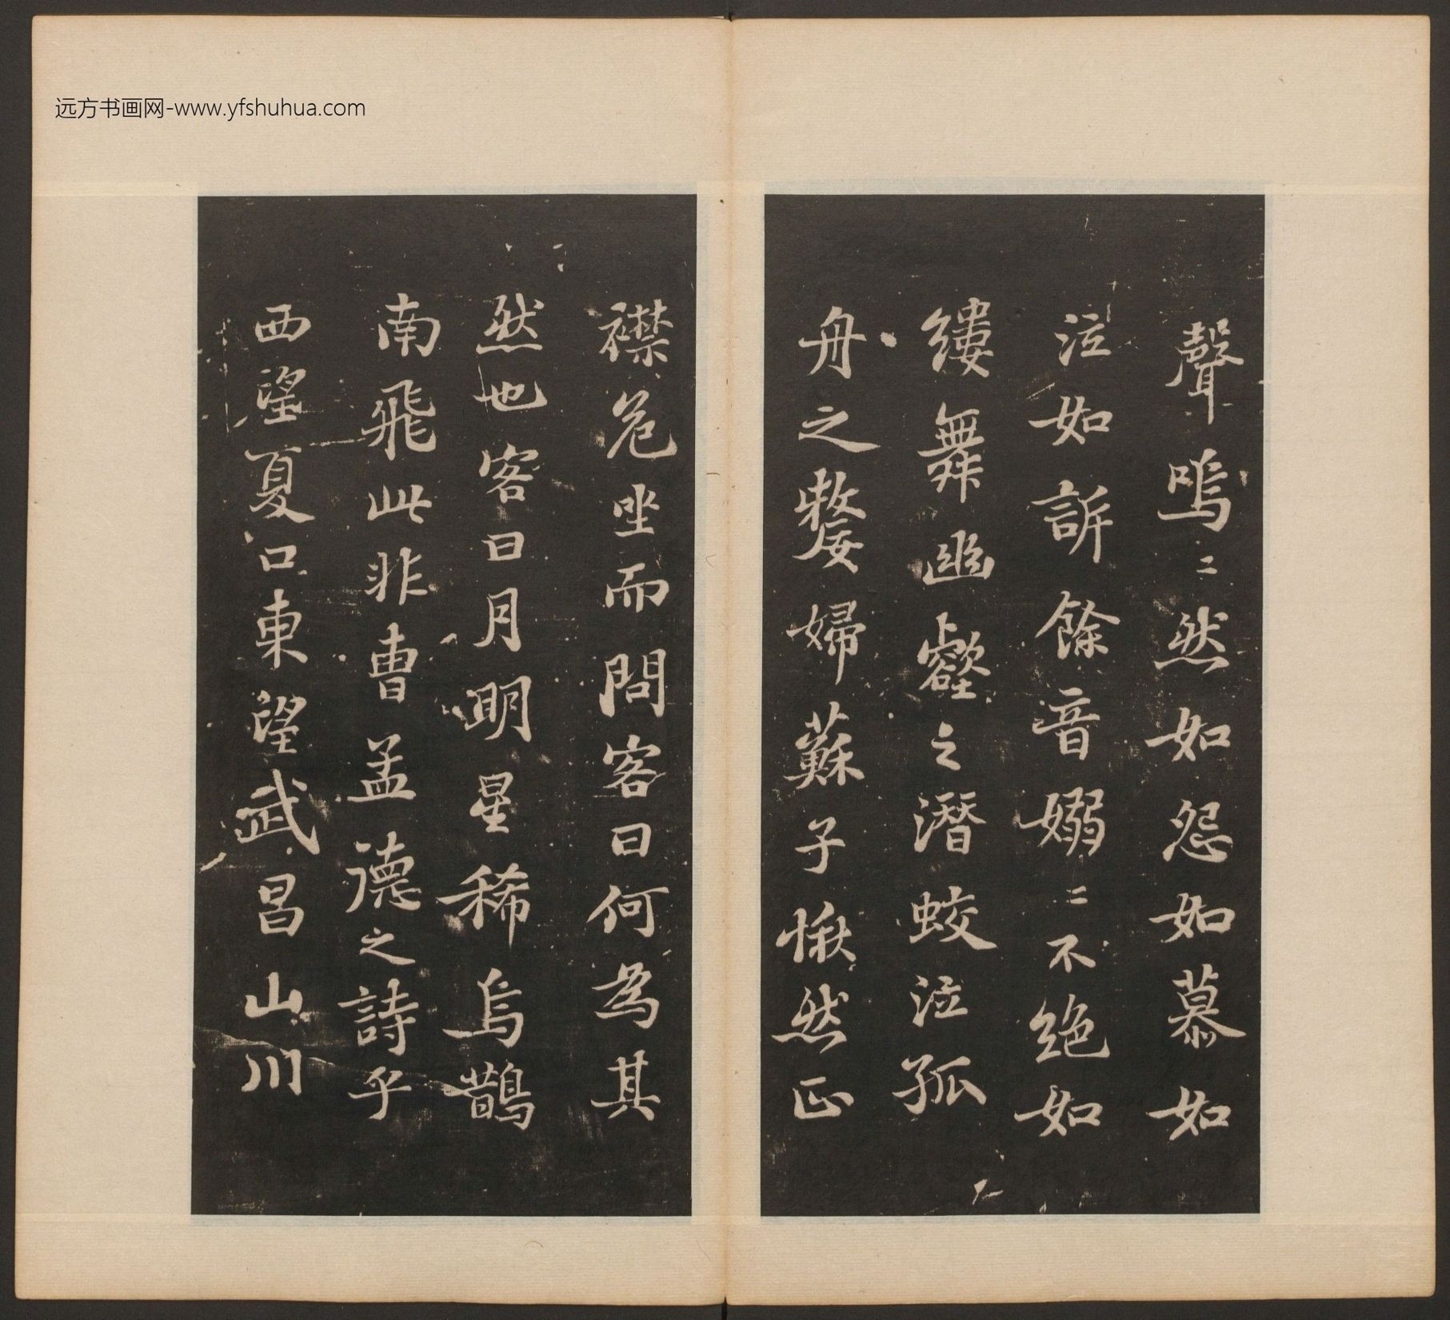 远方书画网-www.yfshuhua.com
聲嗚〻然如怨如慕如
泣如訴餘音嫋〻不絶如
縷舞幽壑之潛蛟泣孤
舟之嫠婦蘇子愀然正
襟危坐而問客曰何為其
然也客曰月明星稀烏鵲
南飛此非曹孟德之詩乎
西望夏口東望武昌山川